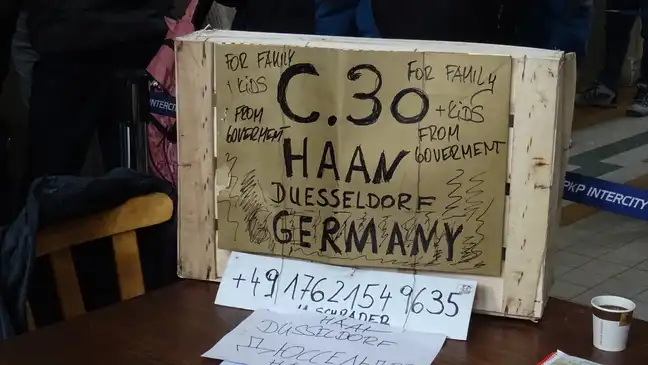 FOR FAMILY
+ KIDS
FROM
GOVERMENT
C.30
FOR FAMILY
+ KIDS
FROM
GOVERMENT
HAAN
DUESSELDORF
GERMANY
+4917621549635
SCHRADER
HAAN
DÜSSELDORF
INTERCITY
PKP INTERCITY